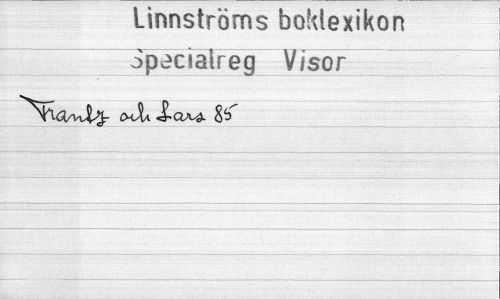 Linnströms boklexikon
Specialreg Visor
Frantz och Lars 85